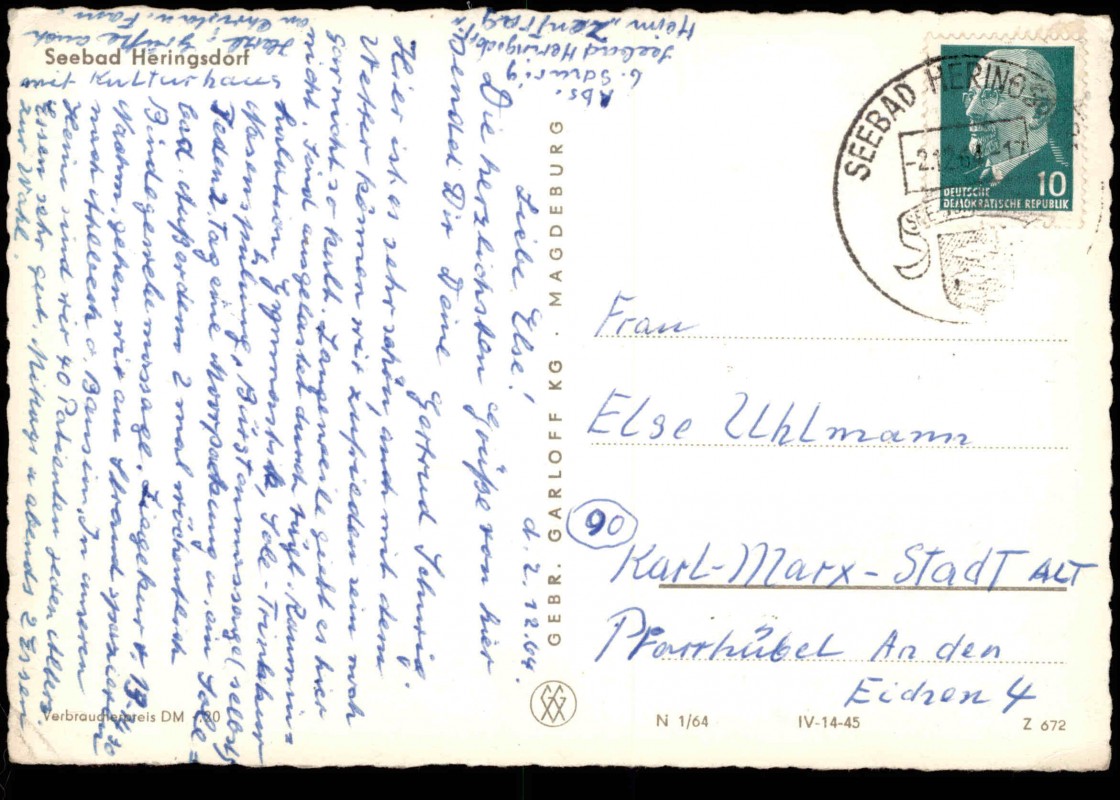 Seebad Heringsdorf
mit Kulturhaus
Liebe Else! d. 2.12.64.
Die herzlichsten Grüße von hier
sendet Dir Deine Gertrud Schurig.
Hier ist es sehr schön, auch mit dem
Wetter können wir zufrieden sein noch
garnicht so kalt. Langeweile gibt es hier
nicht. Sind ausgelastet durch tägl. Raumin=
halation, Gymnastik, Sole-Trinkkur
Nasenspülung, Bürstenmassage (selbst)
Jeden 2. Tag eine Moorpackung u. ein Sole=
bad. Außerdem 2 mal wöchentlich
Bindegewebemassage. Liegekur v.
Nachm. gehen wir am Strand spazieren
nach Ahlbeck o. Bansin. In unserem
Heim sind wir 40 Patienten jeden Alters.
Essen sehr gut. Mittags u. abends 2 Essen
zur Wahl.
Herzl. Grüße auch
an Christa u. Fam.
Abs.
G. Schurig
Seebad Heringsdf.
Heim „Zentrag“
GEBR. GARLOFF KG · MAGDEBURG
SEEBAD HERINGSD
-2.12.64-17
10
DEUTSCHE
DEMOKRATISCHE REPUBLIK
Frau
Else Uhlmann
90
Karl-Marx-Stadt ALT
Pfarrhübel An den
Eichen 4
Verbraucherpreis DM -.20
N 1/64 IV-14-45 Z 672